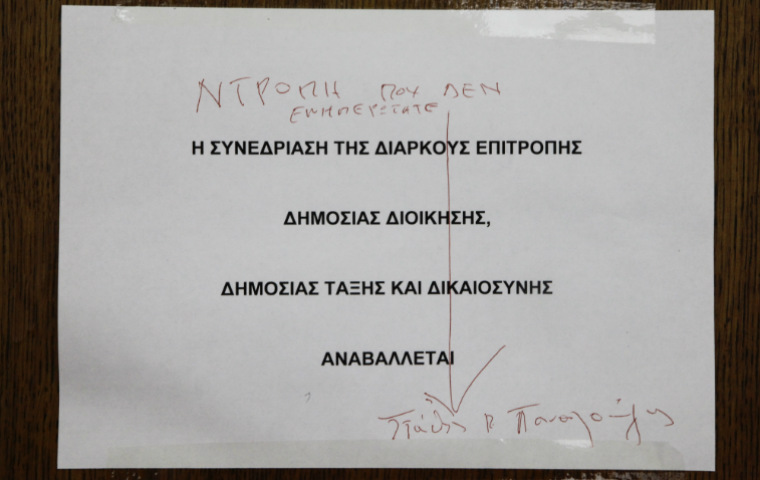 ΝΤΡΟΠΗ ΠΟΥ ΔΕΝ
ΕΝΗΜΕΡΩΤΑΤΕ
Η ΣΥΝΕΔΡΙΑΣΗ ΤΗΣ ΔΙΑΡΚΟΥΣ ΕΠΙΤΡΟΠΗΣ
ΔΗΜΟΣΙΑΣ ΔΙΟΙΚΗΣΗΣ,
ΔΗΜΟΣΙΑΣ ΤΑΞΗΣ ΚΑΙ ΔΙΚΑΙΟΣΥΝΗΣ
ΑΝΑΒΑΛΛΕΤΑΙ
Στάθης